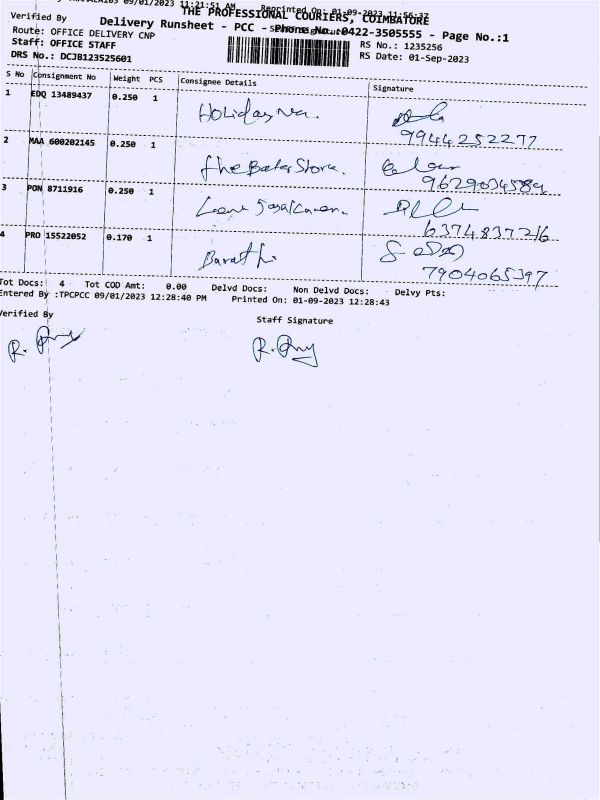 09/01/2023 11:21:51 AM Reprinted On: 01-09-2023 11:56:37
Verified By THE PROFESSIONAL COURIERS, COIMBATORE
Delivery Runsheet - PCC - Phone No.:0422-3505555 - Page No.:1
Route: OFFICE DELIVERY CNP
RS No.: 1235256
Staff: OFFICE STAFF
RS Date: 01-Sep-2023
DRS No.: DCJB123525601
S No Consignment No Weight PCS Consignee Details Signature
1 EDQ 13489437 0.250 1
9944252277
2 MAA 600202145 0.250 1
9629034584
3 PON 8711916 0.250 1
6374837216
4 PRO 15522052 0.170 1
Barathi
7904065397
Tot Docs: 4 Tot COD Amt: 0.00 Delvd Docs: Non Delvd Docs: Delvy Pts:
Entered By :TPCPCC 09/01/2023 12:28:40 PM Printed On: 01-09-2023 12:28:43
Verified By
Staff Signature